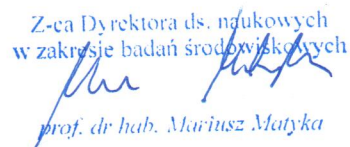 Z-ca Dyrektora ds. naukowych
w zakresie badań środowiskowych
prof. dr hab. Mariusz Matyka